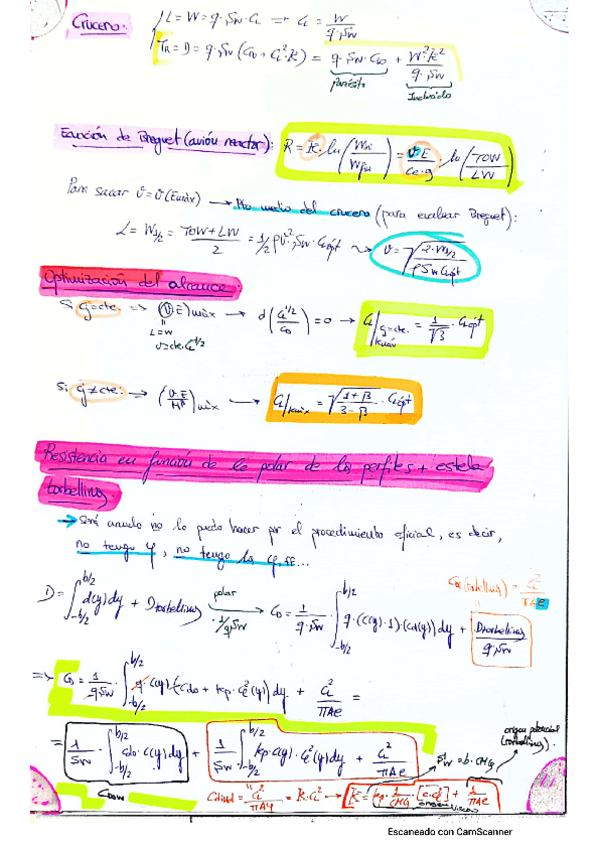 Crucero:
L = W = q·Sw·CL ⟹ CL = W / q·Sw
TR = D = q·Sw (CD0 + CL²·k) = q·Sw·CD0 + W²·k² / q·Sw
parásita
Inducida
Ecuación de Breguet (avión reactor): R = K·ln (Wi / Wfin) = v·E / ce·g · ln (TOW / LW)
Para sacar v = v(Emáx) → Pto medio del crucero (para evaluar Breguet):
L = W1/2 = TOW + LW / 2 = 1/2 ρv²·Sw·CLópt ⤳ v = √(2·W1/2 / ρ Sw CLópt)
Optimización del alcance:
Si cj = cte. ⟹ (v·E)máx → d(CL^1/2 / CD) = 0 → CL / cj = cte. kmáx = 1/√3 · CLópt
L = W
v = cte. CL^1/2
Si cj ≠ cte. → (v·E / M^β)máx → CL / kmáx = √(1+β / 3-β) · CLópt
Resistencia en función de la polar de los perfiles + estela
torbellinos
→ Será cuando no lo puedo hacer por el procedimiento oficial, es decir,
no tengo φ, no tengo la φ, FF...
CDi (torbellinos) = CL² / πAe
D = ∫ b/2 -b/2 d(y) dy + Dtorbellinos polar · 1/qSw → CD = 1 / q·Sw · ∫ b/2 -b/2 q·(c(y)·1)·(cd(y)) dy + Dtorbellinos / q·Sw
⟹ CD = 1 / q·Sw · ∫ b/2 -b/2 q·c(y)·(cdo + kp·cl²(y)) dy + CL² / πAe =
= 1 / Sw · ∫ b/2 -b/2 cdo·c(y) dy + 1 / Sw ∫ b/2 -b/2 kp·c(y)·cl²(y) dy + CL² / πAe
origen potencial (torbellinos).
Sw = b·CMG
CD0w
CDind = CL² / πAφ = K·CL² → K = kp · 1 / CMG · [c·cl²] + 1 / πAe
origen viscoso
Escaneado con CamScanner